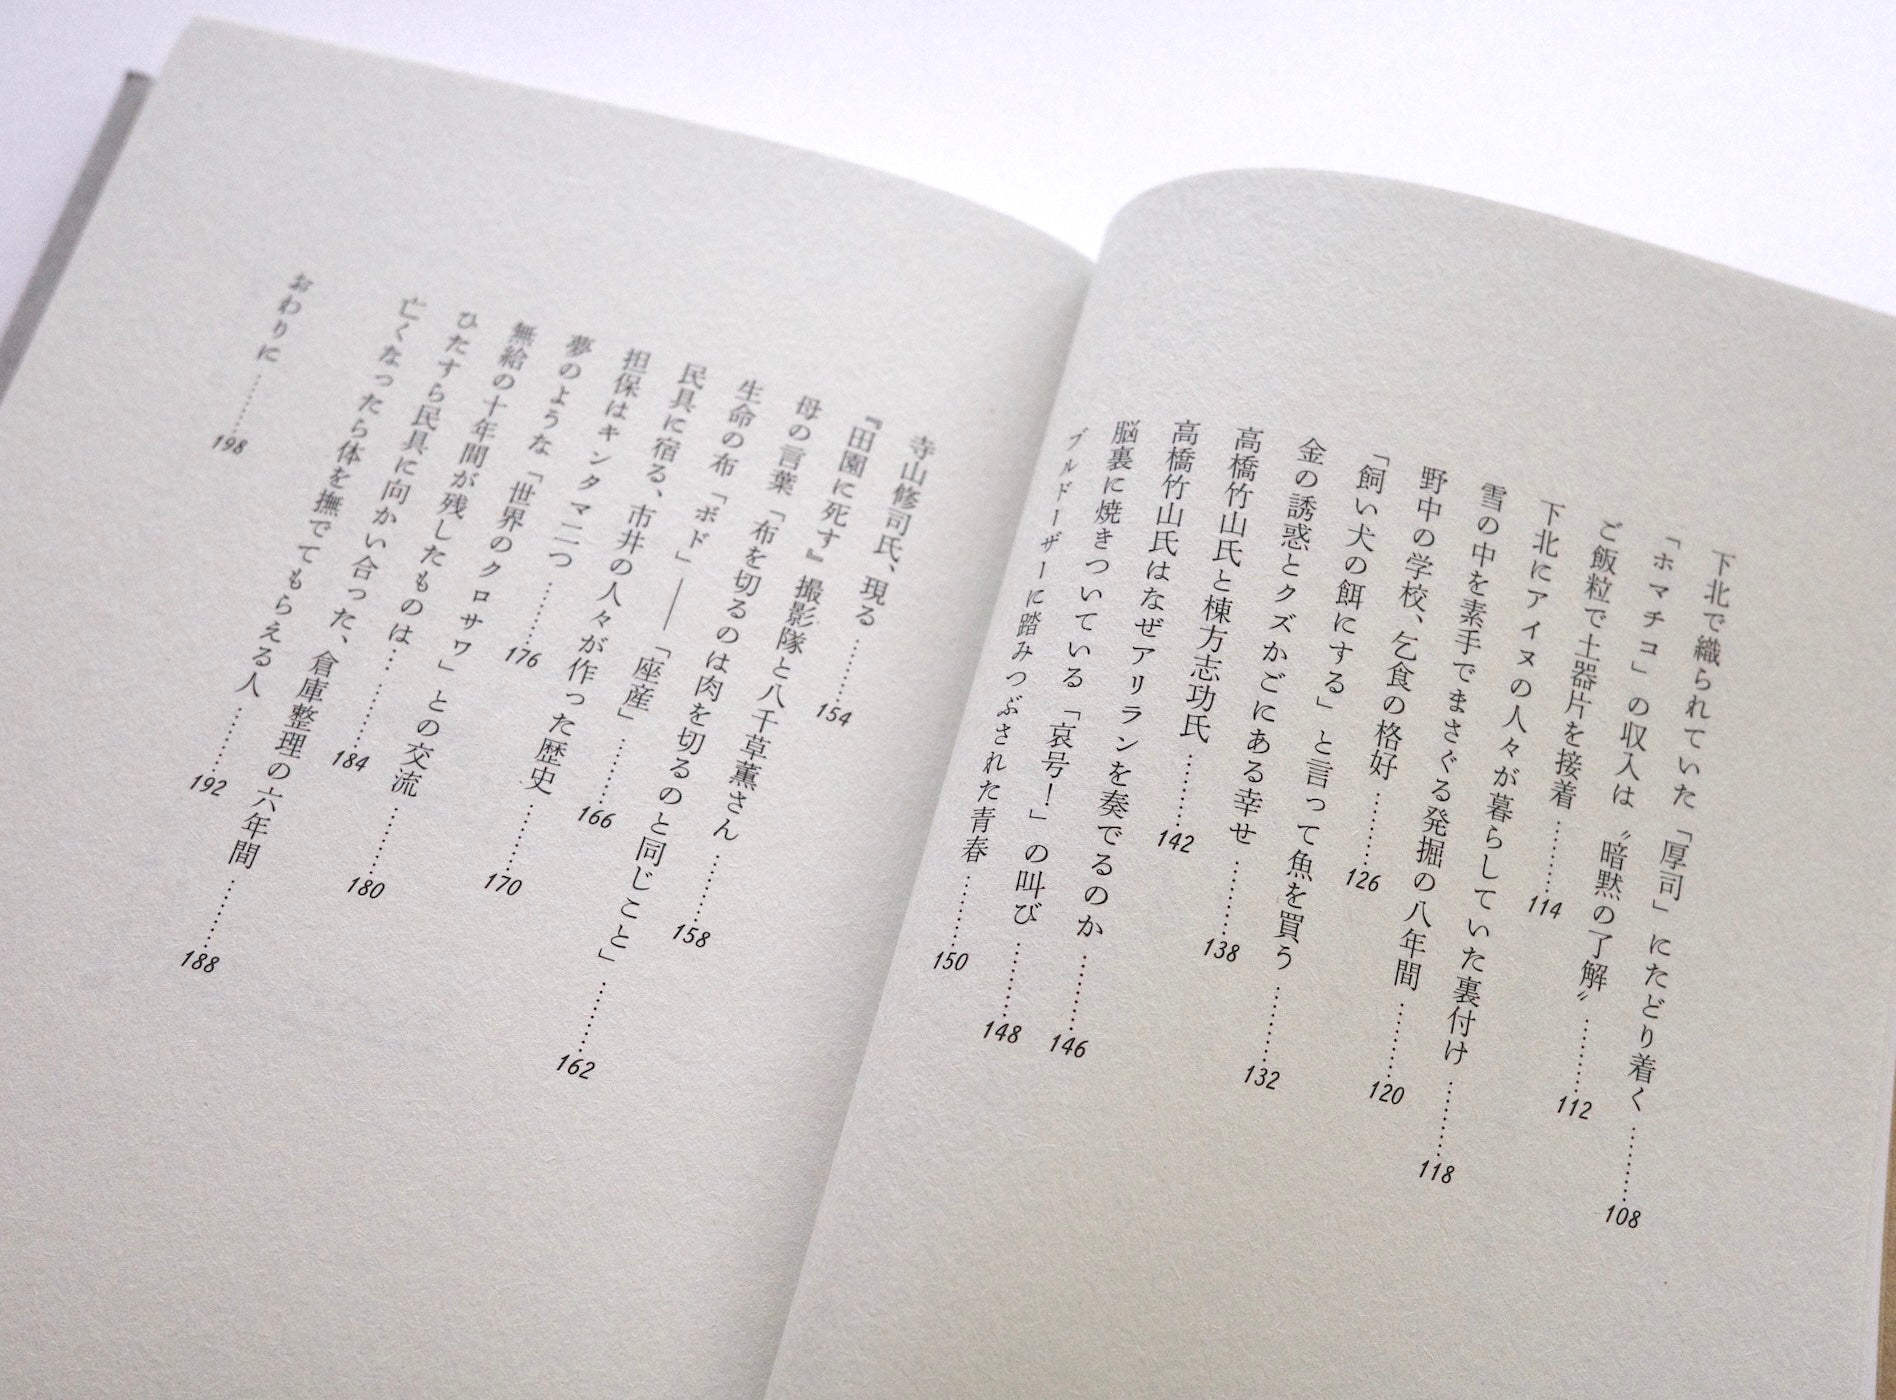 下北で織られていた「厚司」にたどり着く ……… 108
「ホマチコ」の収入は〝暗黙の了解〟 ……… 112
ご飯粒で土器片を接着 ……… 114
下北にアイヌの人々が暮らしていた裏付け ……… 118
雪の中を素手でまさぐる発掘の八年間 ……… 120
野中の学校、乞食の格好 ……… 126
「飼い犬の餌にする」と言って魚を買う ……… 132
金の誘惑とクズかごにある幸せ ……… 138
高橋竹山氏と棟方志功氏 ……… 142
高橋竹山氏はなぜアリランを奏でるのか ……… 146
脳裏に焼きついている「哀号！」の叫び ……… 148
ブルドーザーに踏みつぶされた青春 ……… 150
寺山修司氏、現る ……… 154
『田園に死す』撮影隊と八千草薫さん ……… 158
母の言葉「布を切るのは肉を切るのと同じこと」 ……… 162
生命の布「ボド」――「座産」 ……… 166
民具に宿る、市井の人々が作った歴史 ……… 170
担保はキンタマ二つ ……… 176
夢のような「世界のクロサワ」との交流 ……… 180
無給の十年間が残したものは… ……… 184
ひたすら民具に向かい合った、倉庫整理の六年間 ……… 188
亡くなったら体を撫でてもらえる人 ……… 192
おわりに ……… 198